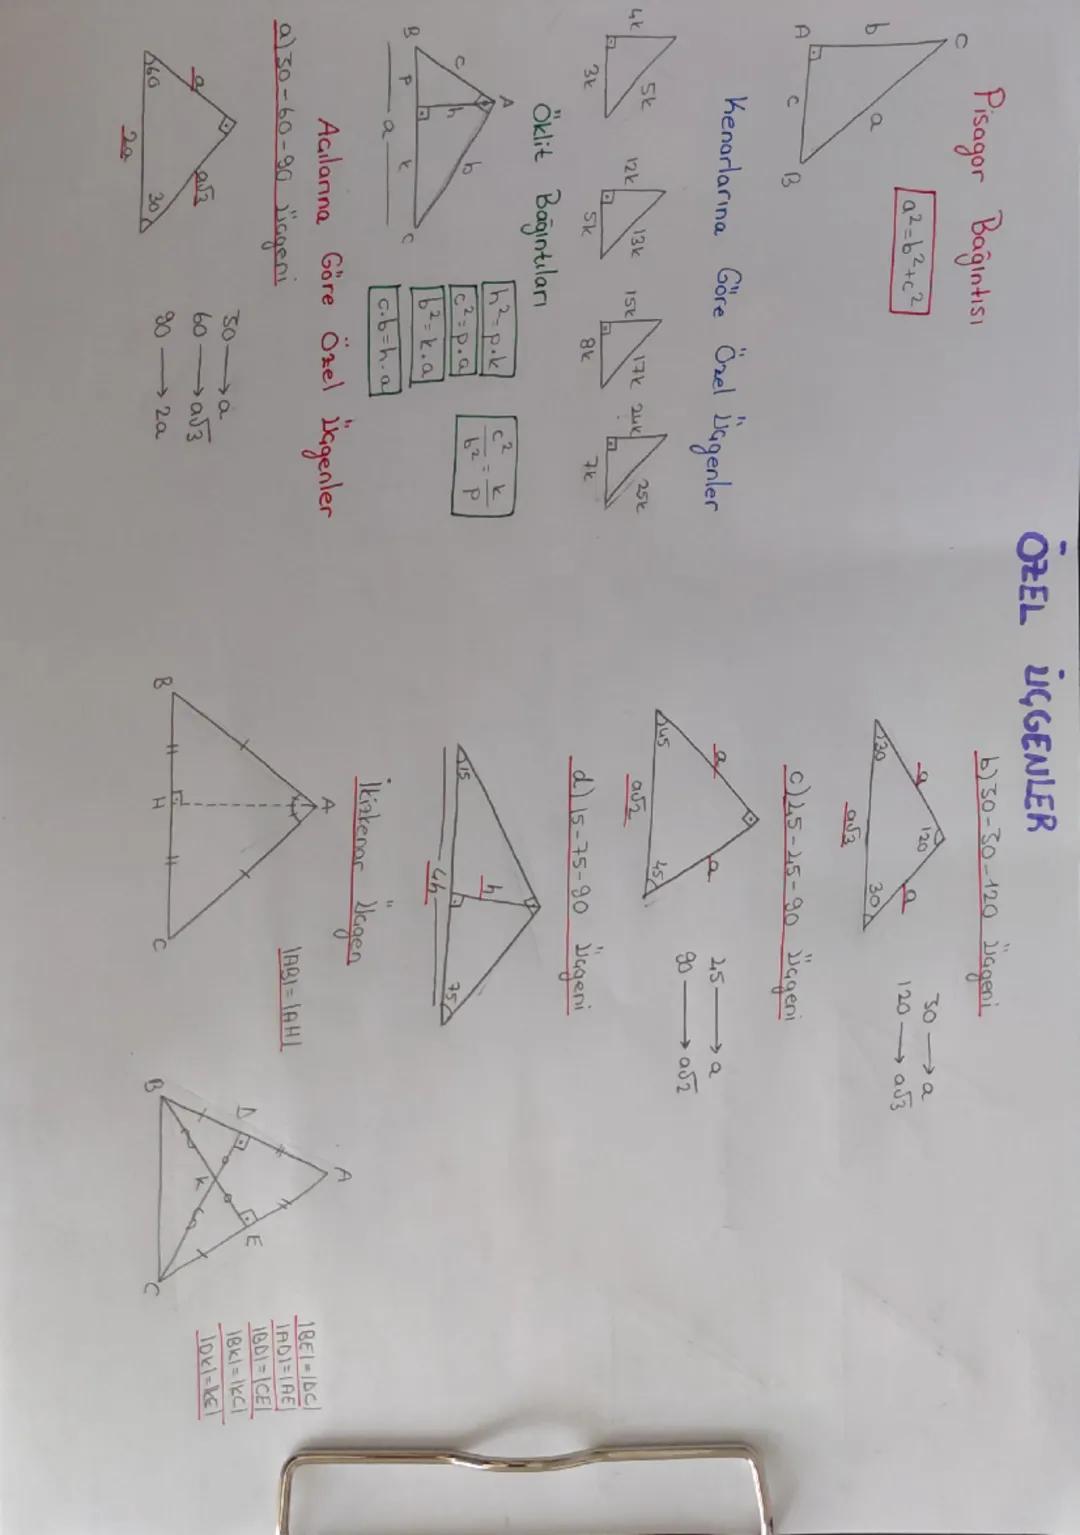 ÖZEL ÜÇGENLER
Pisagor Bağıntısı
C
b
a
A
c
B
a²=b²+c²
Kenarlarına Göre Özel Üçgenler
4k
5k
3k
12k
13k
5k
15k
17k
8k
24k
25k
7k
Öklit Bağıntıları
A
c
h
b
B
p
k
C
a
h²=p.k
c²=p.a
b²=k.a
c.b=h.a
c²/b² = k/p
Açılarına Göre Özel Üçgenler
a)30-60-90 Üçgeni
a
a√3
60
30
2a
30 → a
60 → a√3
90 → 2a
b)30-30-120 Üçgeni
a
120
a
30
30
a√3
30 → a
120 → a√3
c)45-45-90 Üçgeni
a
a
45
45
a√2
45 → a
90 → a√2
d)15-75-90 Üçgeni
h
15
75
4h
İkizkenar Üçgen
A
B
H
C
|AB|=|AH|
A
D
E
K
B
C
|BE|=|DC|
|AD|=|AE|
|BD|=|CE|
|BK|=|KC|
|DK|=|KE|